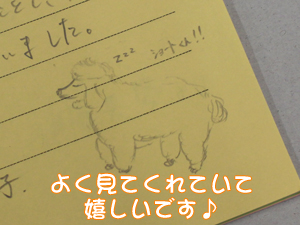 いました。
zzz
ショートくん!!
子.
よく見てくれていて
嬉しいです♪